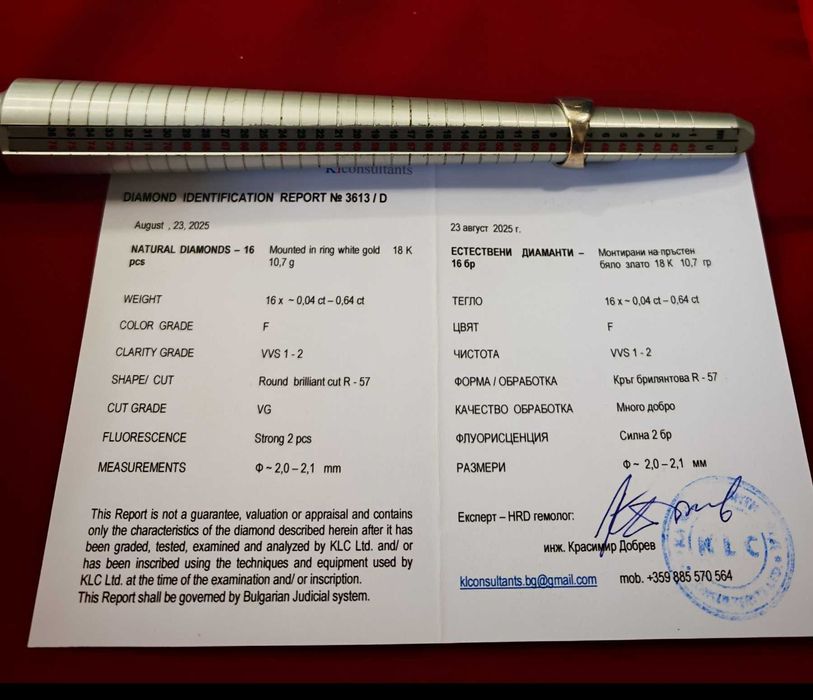 Klconsultants
DIAMOND IDENTIFICATION REPORT № 3613 / D
August , 23, 2025
NATURAL DIAMONDS – 16 pcs
Mounted in ring white gold 18 K
10,7 g
WEIGHT 16 x ~ 0,04 ct – 0,64 ct
COLOR GRADE F
CLARITY GRADE VVS 1 - 2
SHAPE/ CUT Round brilliant cut R - 57
CUT GRADE VG
FLUORESCENCE Strong 2 pcs
MEASUREMENTS Ф ~ 2,0 – 2,1 mm
This Report is not a guarantee, valuation or appraisal and contains
only the characteristics of the diamond described herein after it has
been graded, tested, examined and analyzed by KLC Ltd. and/ or
has been inscribed using the techniques and equipment used by
KLC Ltd. at the time of the examination and/ or inscription.
This Report shall be governed by Bulgarian Judicial system.
23 август 2025 г.
ЕСТЕСТВЕНИ ДИАМАНТИ –
16 бр
Монтирани на пръстен
бяло злато 18 К 10,7 гр
ТЕГЛО 16 x ~ 0,04 ct – 0,64 ct
ЦВЯТ F
ЧИСТОТА VVS 1 - 2
ФОРМА / ОБРАБОТКА Кръг брилянтова R - 57
КАЧЕСТВО ОБРАБОТКА Много добро
ФЛУОРИСЦЕНЦИЯ Силна 2 бр
РАЗМЕРИ Ф ~ 2,0 – 2,1 мм
Експерт – HRD гемолог:
инж. Красимир Добрев
klconsultants.bg@gmail.com mob. +359 885 570 564
KLC